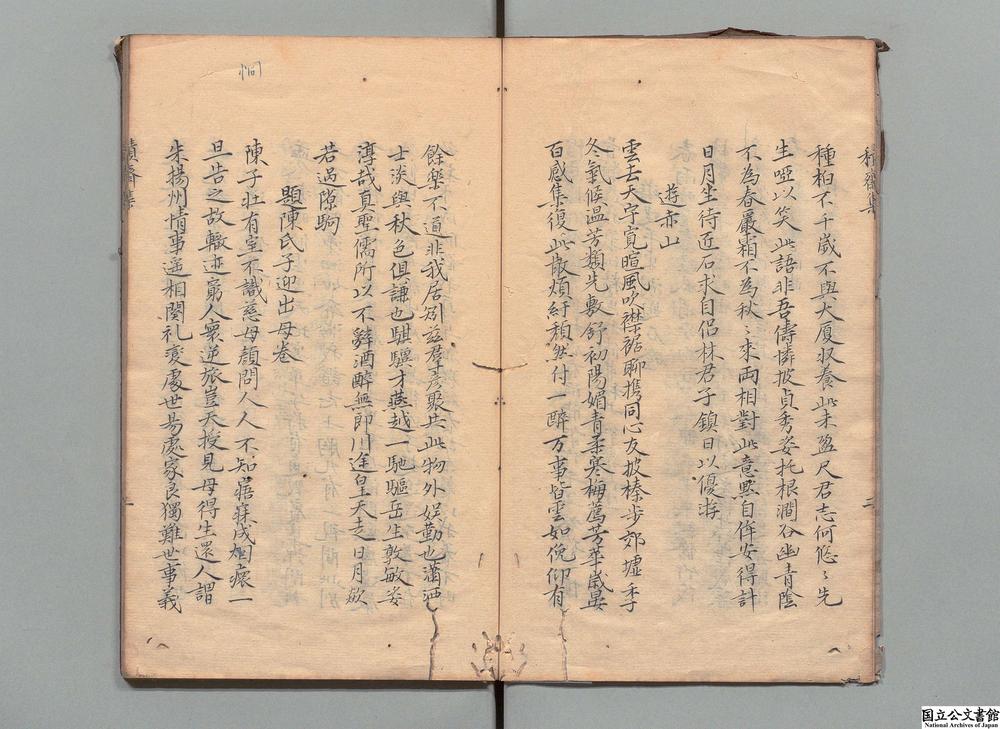 種柏不千歳不與大厦収養此未盈尺君志何悠〻先
生啞以笑此語非吾儔憐披貞秀姿托根澗谷幽青陰
不為春嚴霜不為秋〻来両相對此意黙自侔安得計
日月坐待近石求自侣林君子鎮日以優游
遊赤山
雲去天宇寛暄風吹襟裾聊携同心友披榛步郊墟季
冬氣候温芳類先敷舒初陽媚青柔寒梅薦芳華歳晏
百感集復此散煩紆頽然付一醉万事皆雲如俛仰有
餘樂不道非我居矧兹羣彦聚共此物外娱勤也瀟洒
士淡與秋色俱謙也騏驥才燕越一馳驅岳生敦敏姿
淳哉真聖儒所以不辭酒醉無即川途皇天走日月欻
若過隙駒
題陳氏子迎出母卷
陳子壮有室不識慈母顔問人人不知寤寐成烟瘝一
旦告之故轍迹窮人寰逆旅豈天授見母得生還人謂
朱揚州情事遥相関礼変處世易處家良獨難世事義
国立公文書館
National Archives of Japan